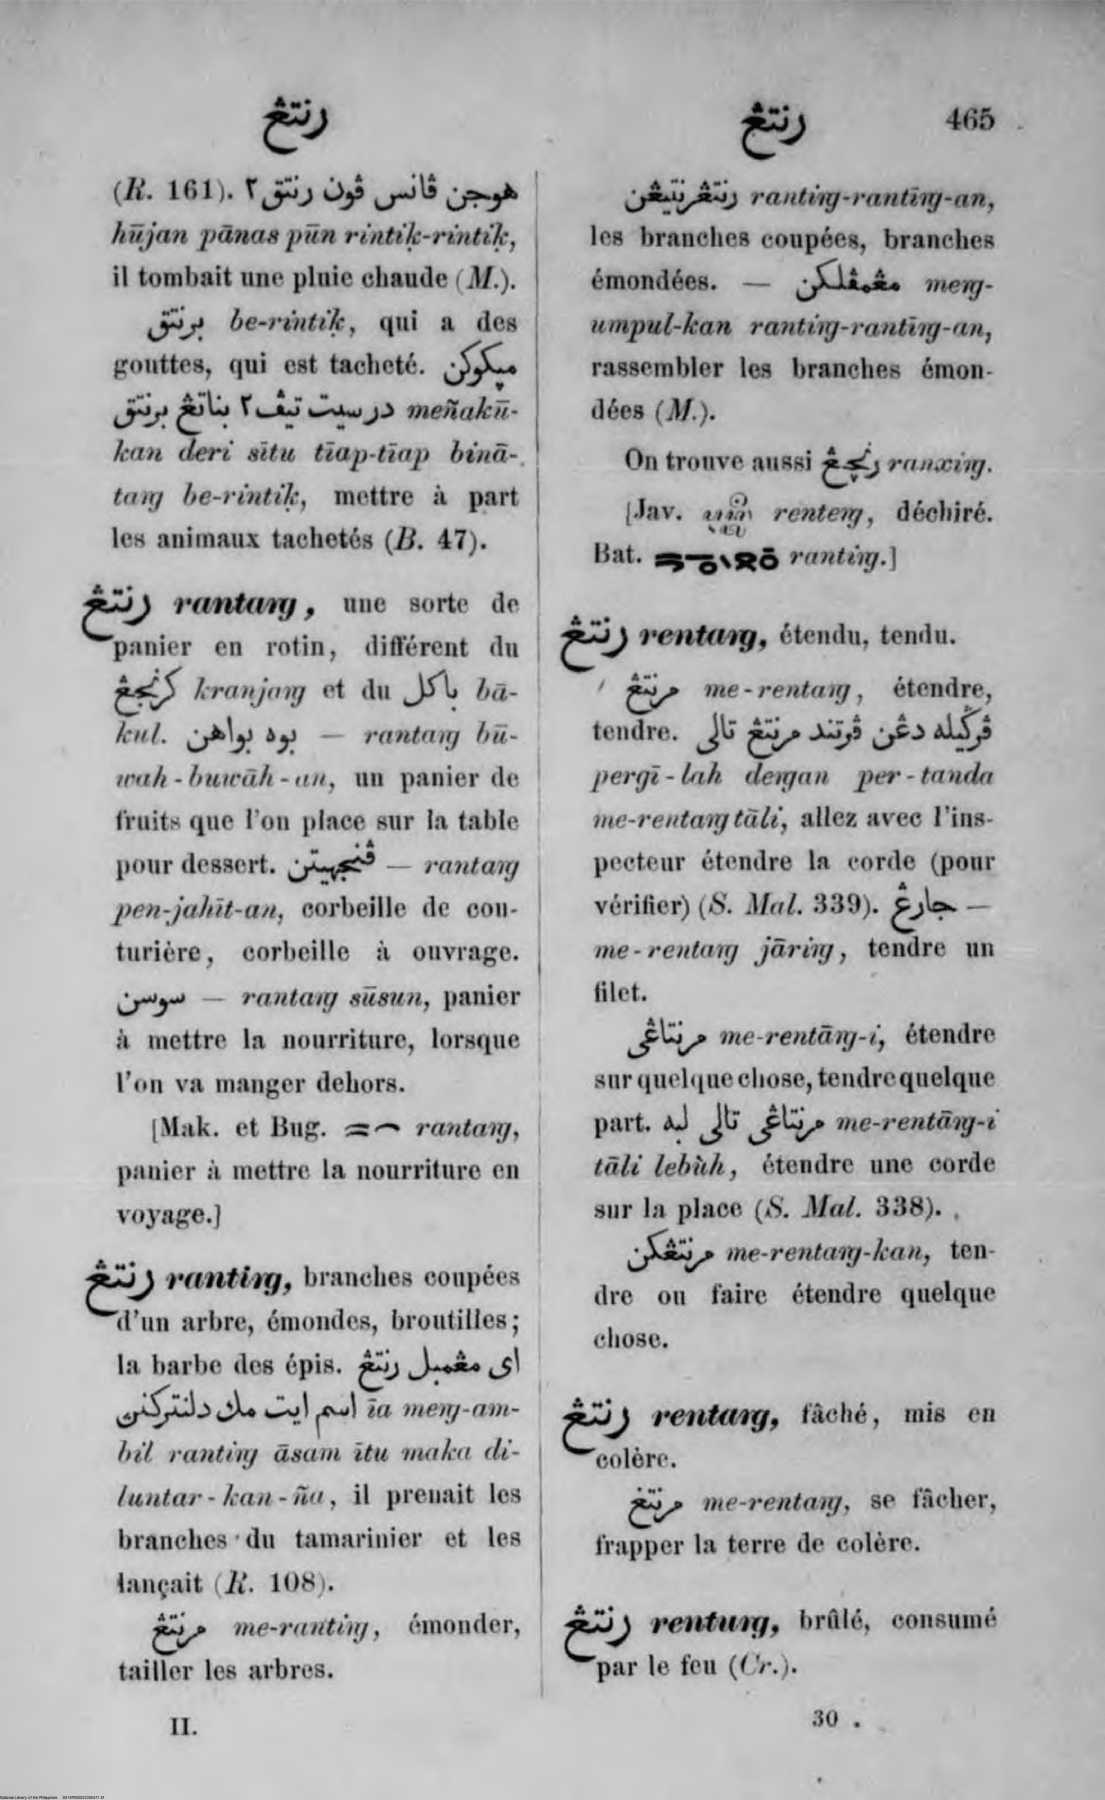 رنتڠ
رنتڠ 465
(R. 161). هوجن ڤانس ڤون رنتق٢
hūjan pānas pūn rintiḳ-rintiḳ,
il tombait une pluie chaude (M.).
برنتق be-rintiḳ, qui a des
gouttes, qui est tacheté. ميڬوكن
درسيت تيڤ٢ بناتڠ برنتق meñakū-
kan deri sītu tīap-tīap binā-
taṅg be-rintiḳ, mettre à part
les animaux tachetés (B. 47).
رنتڠ rantaṅg, une sorte de
panier en rotin, différent du
كرنجڠ kranjaṅg et du باكل bā-
kul. بوه بواهن — rantaṅg bū-
wah-buwāh-an, un panier de
fruits que l'on place sur la table
pour dessert. ڤنجهيتن — rantaṅg
pen-jahīt-an, corbeille de cou-
turière, corbeille à ouvrage.
سوسن — rantaṅg sūsun, panier
à mettre la nourriture, lorsque
l'on va manger dehors.
[Mak. et Bug. rantaṅg,
panier à mettre la nourriture en
voyage.]
رنتڠ rantiṅg, branches coupées
d'un arbre, émondes, broutilles;
la barbe des épis. اى مڠمبل رنتڠ
اسم ايت مك دلنتركنن īa meṅg-am-
bil rantiṅg āsam ītu maka di-
luntar-kan-ña, il prenait les
branches du tamarinier et les
lançait (R. 108).
مرنتڠ me-rantiṅg, émonder,
tailler les arbres.
II.
رنتڠرنتيڠن rantiṅg-rantīṅg-an,
les branches coupées, branches
émondées. — مڠمڤلكن meṅg-
umpul-kan rantiṅg-rantīṅg-an,
rassembler les branches émon-
dées (M.).
On trouve aussi رنچڠ ranxiṅg.
[Jav. renteṅg, déchiré.
Bat. rantiṅg.]
رنتڠ rentaṅg, étendu, tendu.
مرنتڠ me-rentaṅg, étendre,
tendre. ڤرڬيله دڠن ڤرتند مرنتڠ تالى
pergī-lah deṅgan per-tanda
me-rentaṅg tāli, allez avec l'ins-
pecteur étendre la corde (pour
vérifier) (S. Mal. 339). جارڠ —
me-rentaṅg jāriṅg, tendre un
filet.
مرنتاڠى me-rentāṅg-i, étendre
sur quelque chose, tendre quelque
part. مرنتاڠى تالى لبه me-rentāṅg-i
tāli lebùh, étendre une corde
sur la place (S. Mal. 338).
مرنتڠكن me-rentaṅg-kan, ten-
dre ou faire étendre quelque
chose.
رنتڠ rentaṅg, fâché, mis en
colère.
مرنتڠ me-rentaṅg, se fâcher,
frapper la terre de colère.
رنتڠ rentuṅg, brûlé, consumé
par le feu (Cr.).
30